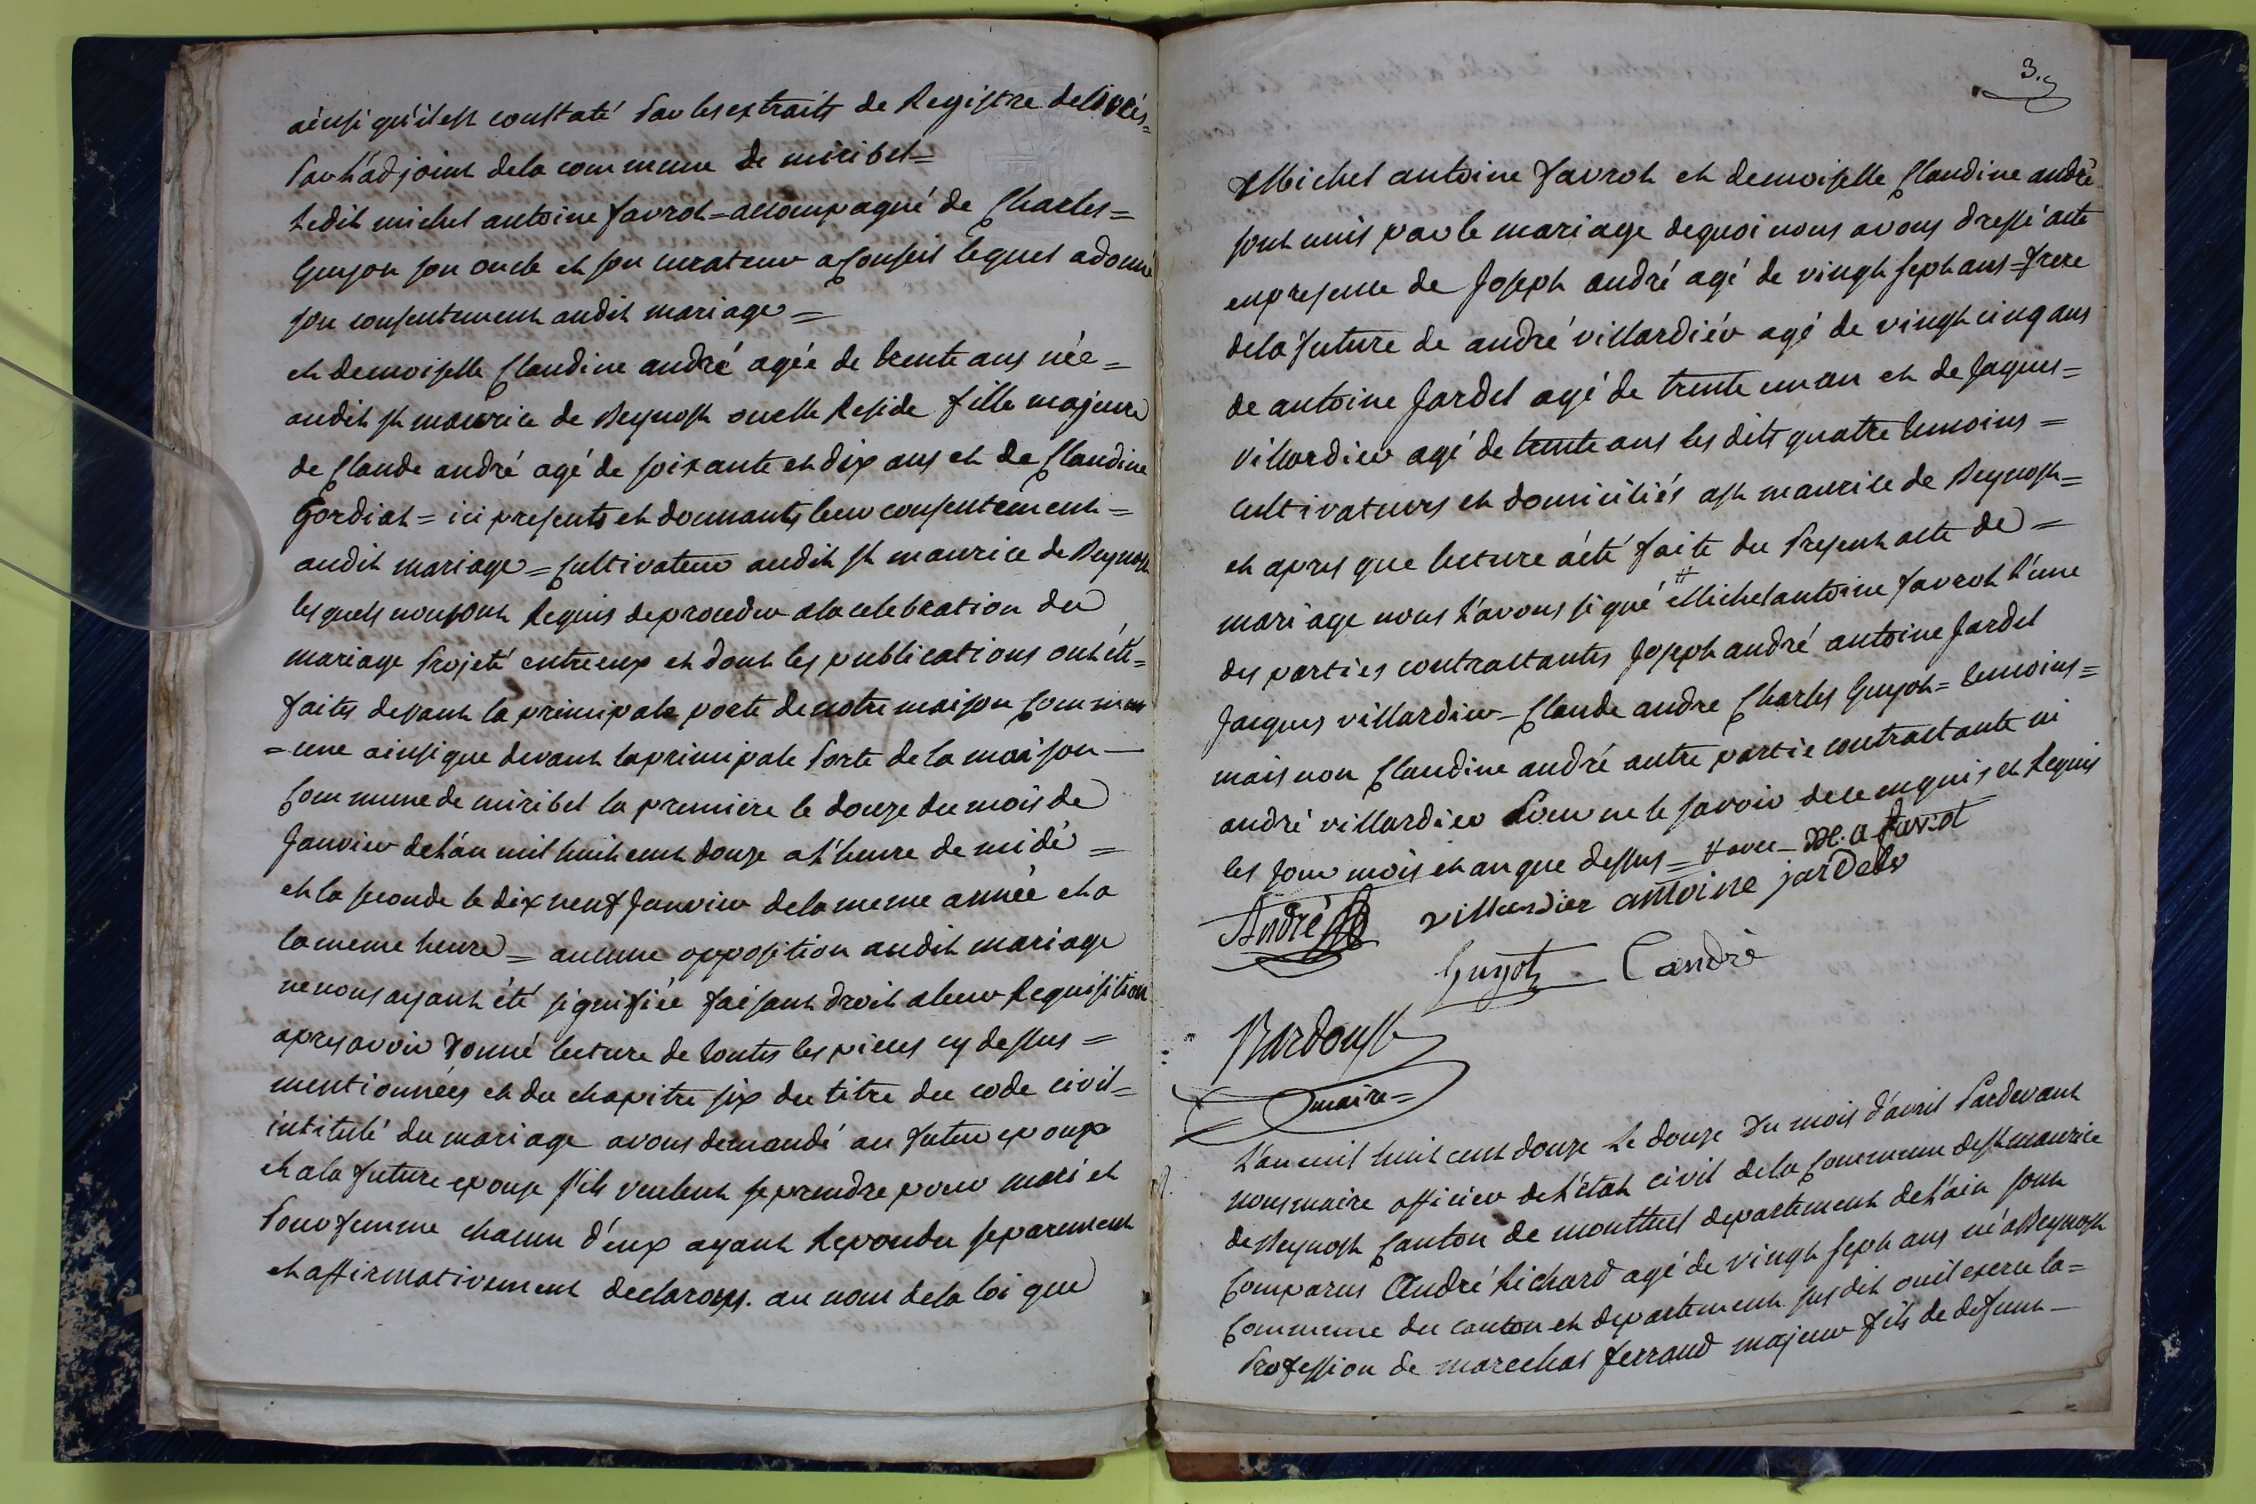 ainsi qu'il est constaté Par les extraits de Registre delivrés=
Par L'adjoint dela commune de miribel=
Ledit michel antoine favrot=accompagné de Charles=
Guyot son oncle et son curateur a Conseil lequel adonné
son consentement audit mariage=
et demoiselle Claudine andré agée de trente ans née=
audit st maurice de Beynost ou elle Reside fille majeure
de Claude andré agé de soixante et dix ans et de Claudine
Gordiat= ici presents et donnants leur consentement=
audit mariage= Cultivateur audit st maurice de Beynost
lesquels nous ont Requis de proceder a la celebration du
mariage Projeté entre eux et dont les publications ont été=
faites devant la principale porte de notre maison Comm
=une ainsi que devant la principale Porte de la maison—
Commune de miribel la premiere le douze du mois de
Janvier del'an mil huit cent douze a l'heure de midi=
et la seconde le dix neuf Janvier dela meme année et a
la meme heure= aucune opposition audit mariage
ne nous ayant été signifiée faisant droit a leur Requisition
apres avoir donné lecture de toutes les pieces cy dessus=
mentionnées et du chapitre six du titre du code civil=
intitulé du mariage avons demandé au futur epoux
et a la future epouse s'ils veulent se prendre pour mari et
Pour femme chacun d'eux ayant Repondu separement
et affirmativement declarons au nom dela loi que
3.
Michel antoine favrot et demoiselle Claudine andré
sont unis par le mariage dequoi nous avons dressé acte
enpresence de Joseph andré agé de vingt sept ans=frere
dela future de andré villardiér agé de vingt cinq ans
de antoine Jardel agé de trente un an et de Jaques=
villardier agé de trente ans les dits quatre temoins=
cultivateurs et domiciliés a st maurice de Beynost=
et apres que lecture a été faite du Present acte de=
mariage nous L'avons signé # Michel antoine favrot L'une
des parties contractantes Joseph andré antoine Jardel
Jacques villardier– Claude andre Charles Guyot= temoins=
mais non Claudine andré autre partie contractante ni
andré villardier Pour ne le savoir dece enquis et Requis
les jour mois et an que dessus= # avec– M. a favrot
André villardier antoine jardel
Guyot. C andré
Bardoust
maire=
L'an mil huit cent douze Le douze du mois d'avril Pardevant
nous maire officier de L'état civil dela Commune de st maurice
de Beynost Canton de montluel departement de L'ain sont
Comparus André Richard agé de vingt sept ans né a Beynost
Commune du canton et departement susdit ou il exerce la=
Profession de marechal ferrand majeur fils de defunt—